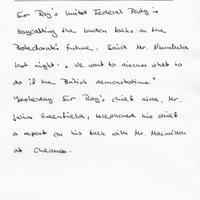 Sir Roy's United Federal Party is
boycotting the London talks on the
Protectorate's future. Said Mr. Nkumbula
last night: "We want to discuss what to
do if the British demonstrations."
Yesterday Sir Roy's chief aide, Mr.
Julius Greenfield, telephoned his chief
a report on his talk with Mr. Macmillan
at Chequers.